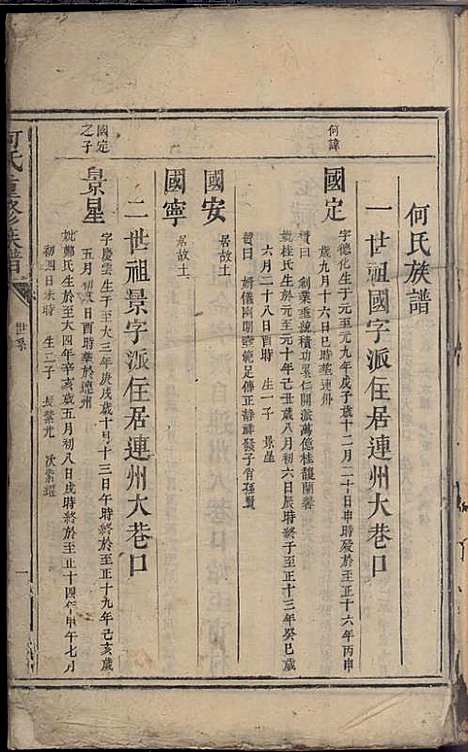 何氏族譜
一世祖國字派住居連州大巷口
何諱
國定
字德化生于元至元九年戊子歲十二月二十日申時歿於至正十六年丙申
歲九月十六日巳時葬連州
贊曰 創業垂統積功累仁開派萬億桂馥蘭馨
妣桂氏生於元至元十年己丑歲八月初六日辰時終于至正十三年癸巳歲
六月二十八日酉時 生一子 景星
贊曰 婦儀幽閒壼範足傳正靜祥發子肖孫賢
國安
居故土
國寧
居故土
二世祖景字派住居連州大巷口
國定之子
景星
字慶雲生于至大三年庚戌歲十月十三日午時終於至正十九年己亥歲
五月初 日酉時葬於連州
妣鄭氏生於至大四年辛亥歲五月初八日戌時終於至正十四年甲午七月
初四日未時 生二子 長紫光 次紫耀
何氏重修族譜
世系
一